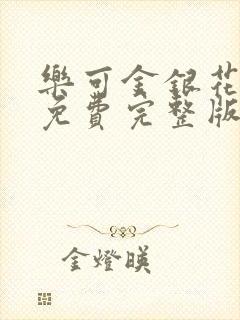 樂可金銀花
免費完整版
金燈暎